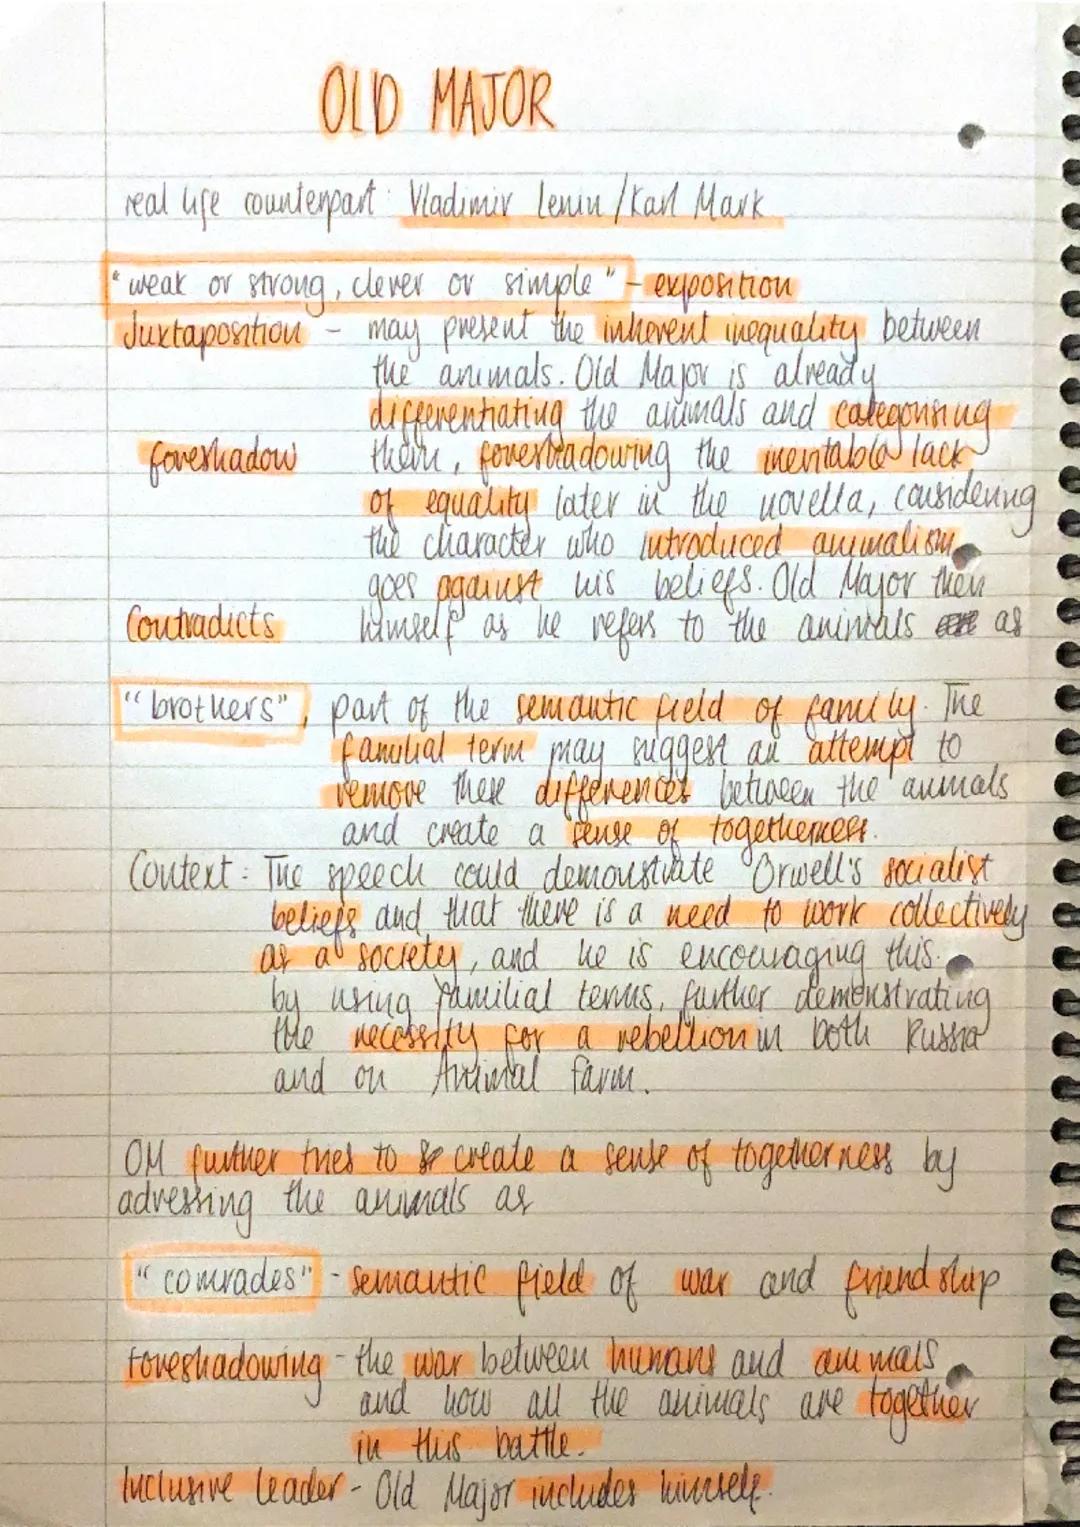 OLD MAJOR
real life counterpart: Vladimir Lenin / Karl Mark
"weak or strong, clever or simple" - exposition
Juxtaposition - may present the inherent inequality between
the animals. Old Major is already
differentiating the animals and categorising
foreshadow them, foreshadowing the inevitable lack
of equality later in the novella, considering
the character who introduced animalism
goes against his beliefs. Old Major then
Contradicts himself as he refers to the animals as
"brothers", part of the semantic field of family. The
familial term may suggest an attempt to
remove these differences between the animals
and create a sense of togetherness.
Context: The speech could demonstrate Orwell's socialist
beliefs and that there is a need to work collectively
as a society, and he is encouraging this.
by using familial terms, further demonstrating
the necessity for a rebellion in both Russia
and on Animal farm.
OM further tries to create a sense of togetherness by
adressing the animals as
"comrades" - semantic field of war and friendship
foreshadowing - the war between humans and animals
and how all the animals are together
in this battle.
Inclusive leader - Old Major includes himself.